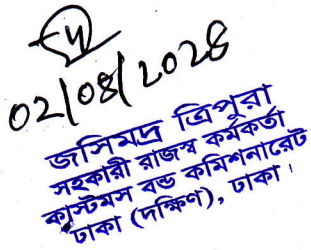 02/08/2028
জসিমদ্র ত্রিপুরা
সহকারী রাজস্ব কর্মকর্তা
কাস্টমস বন্ড কমিশনারেট
ঢাকা (দক্ষিণ), ঢাকা।